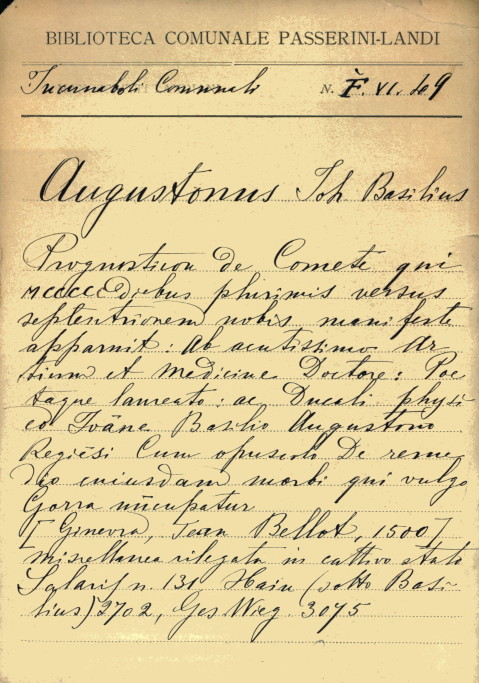 BIBLIOTECA COMUNALE PASSERINI-LANDI
Incunaboli Comunali N. F. VI. 9
Augustonus Joh Basilius
Prognosticon de Cometa qui
MCCCCC diebus plurimis versus
septentrionem nobis manifeste
apparuit: Ab acutissimo Ar-
tium et Medicine Doctore: Poe
taque laureato: ac Ducali physi
co Ioãne Basilio Augustono
Regiẽsi Cum opusculo De reme
dio cuiusdam morbi qui vulgo
Gorra nũcupatur
[Ginevra, Jean Bellot, 1500]
miscellanea rilegata in cattivo stato
n. 131 Hain (sotto Basi-
lius) 2702, Ges Wieg. 3075